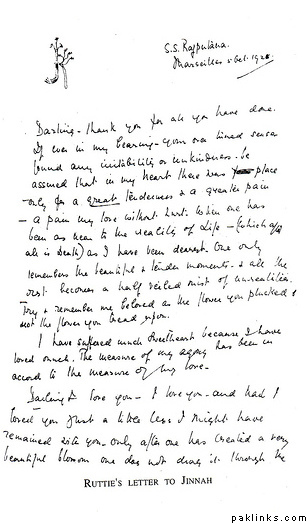 S.S. Rajputana,
Marseilles 5 Oct. 1928
Darling - thank you for all you have done.
If ever in my bearing - your once tuned senses
found any irritability or unkindness - be
assured that in my heart there was place
only for a great tenderness & a greater pain
- a pain my love without hurt. When one has
been as near to the reality of Life - (which after
all is Death) as I have been dearest - one only
remembers the beautiful & tender moments - & all the
rest becomes a half veiled mist of unrealities.
Try & remember me beloved as the flower you plucked &
not the flower you tread upon.
I have suffered much sweetheart because I have
loved much. The measure of my agony has been in
accord to the measure of my love -
Darling I love you - I love you - and had I
loved you just a little less I might have
remained with you - only after one has created a very
beautiful blossom one does not drag it through the
RUTTIE'S LETTER TO JINNAH
paklinks.com